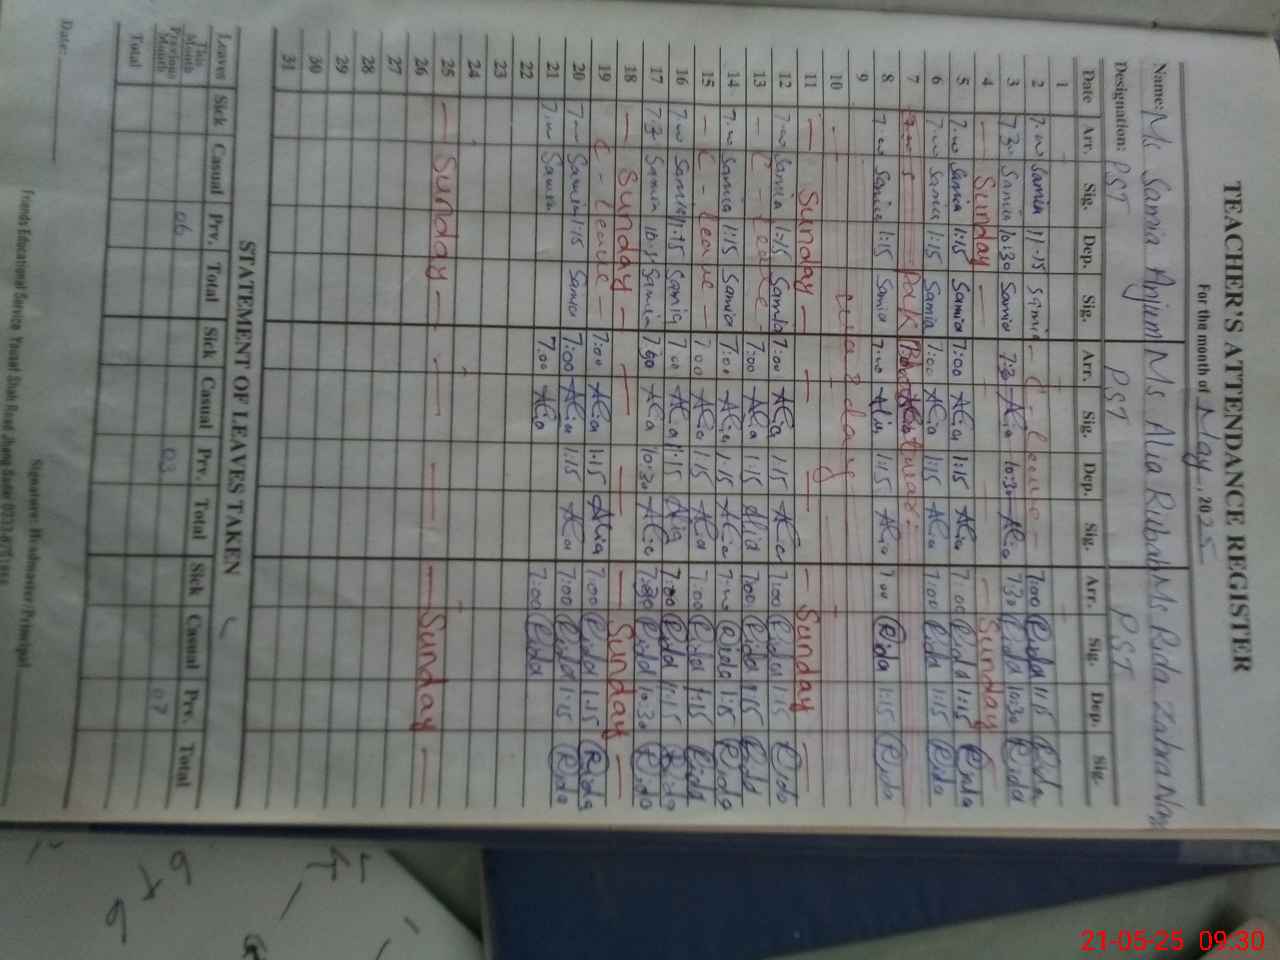 TEACHER'S ATTENDANCE REGISTER
For the month of May, 2025
Name: Ms Samia Anjum Ms Alia Rubab Ms Rida Zahra
Designation: PST PST PST
Date Arr. Sig. Dep. Sig. Arr. Sig. Dep. Sig. Arr. Sig. Dep. Sig.
1
2 7:00 Samia 11-15 Samia - C - leave - 7:00 Rida 11:15 Rida
3 7:30 Samia 10:30 Samia 7:30 Alia 10:30 Alia 7:30 Rida 10:30 Rida
4 - Sunday - - Sunday
5 7:00 Samia 1:15 Samia 7:00 Alia 1:15 Alia 7:00 Rida 1:15 Rida
6 7:00 Samia 1:15 Samia 7:00 Alia 1:15 Alia 7:00 Rida 1:15 Rida
7
8 7:00 Samia 1:15 Samia 7:00 Alia 1:15 Alia 7:00 Rida 1:15 Rida
9
10
11 — Sunday — — — Sunday —
12 7:00 Samia 1:15 Samia 7:00 Alia 1:15 Alia 7:00 Rida 1:15 Rida
13 - C - Leave 7:00 Alia 1:15 Alia 7:00 Rida 1:15 Rida
14 7:00 Samia 1:15 Samia 7:00 Alia 1:15 Alia 7:00 Rida 1:15 Rida
15 - C - leave - 7:00 Alia 1:15 Alia 7:00 Rida 1:15 Rida
16 7:00 Samia 1:15 Samia 7:00 Alia 1:15 Alia 7:00 Rida 1:15 Rida
17 7:30 Samia 10:30 Samia 7:30 Alia 10:30 Alia 7:30 Rida 10:30 Rida
18 — Sunday — — — — Sunday —
19 C - Leave - 7:00 Alia 1:15 Alia 7:00 Rida 1:15 Rida
20 7:00 Samia 1:15 Samia 7:00 Alia 1:15 Alia 7:00 Rida 1:15 Rida
21 7:00 Samia 7:00 Alia 7:00 Rida
22
23
24
25 — Sunday — — — — Sunday —
26
27
28
29
30
31
STATEMENT OF LEAVES TAKEN
Leaves Sick Casual Prv. Total Sick Casual Prv. Total Sick Casual Prv. Total
This Month
Previous Month 06 03 07
Total
Date: Signature: Headmaster/Principal
Friends Educational Service Yousaf Shah Road Jhang Sadar
21-05-25 09:30